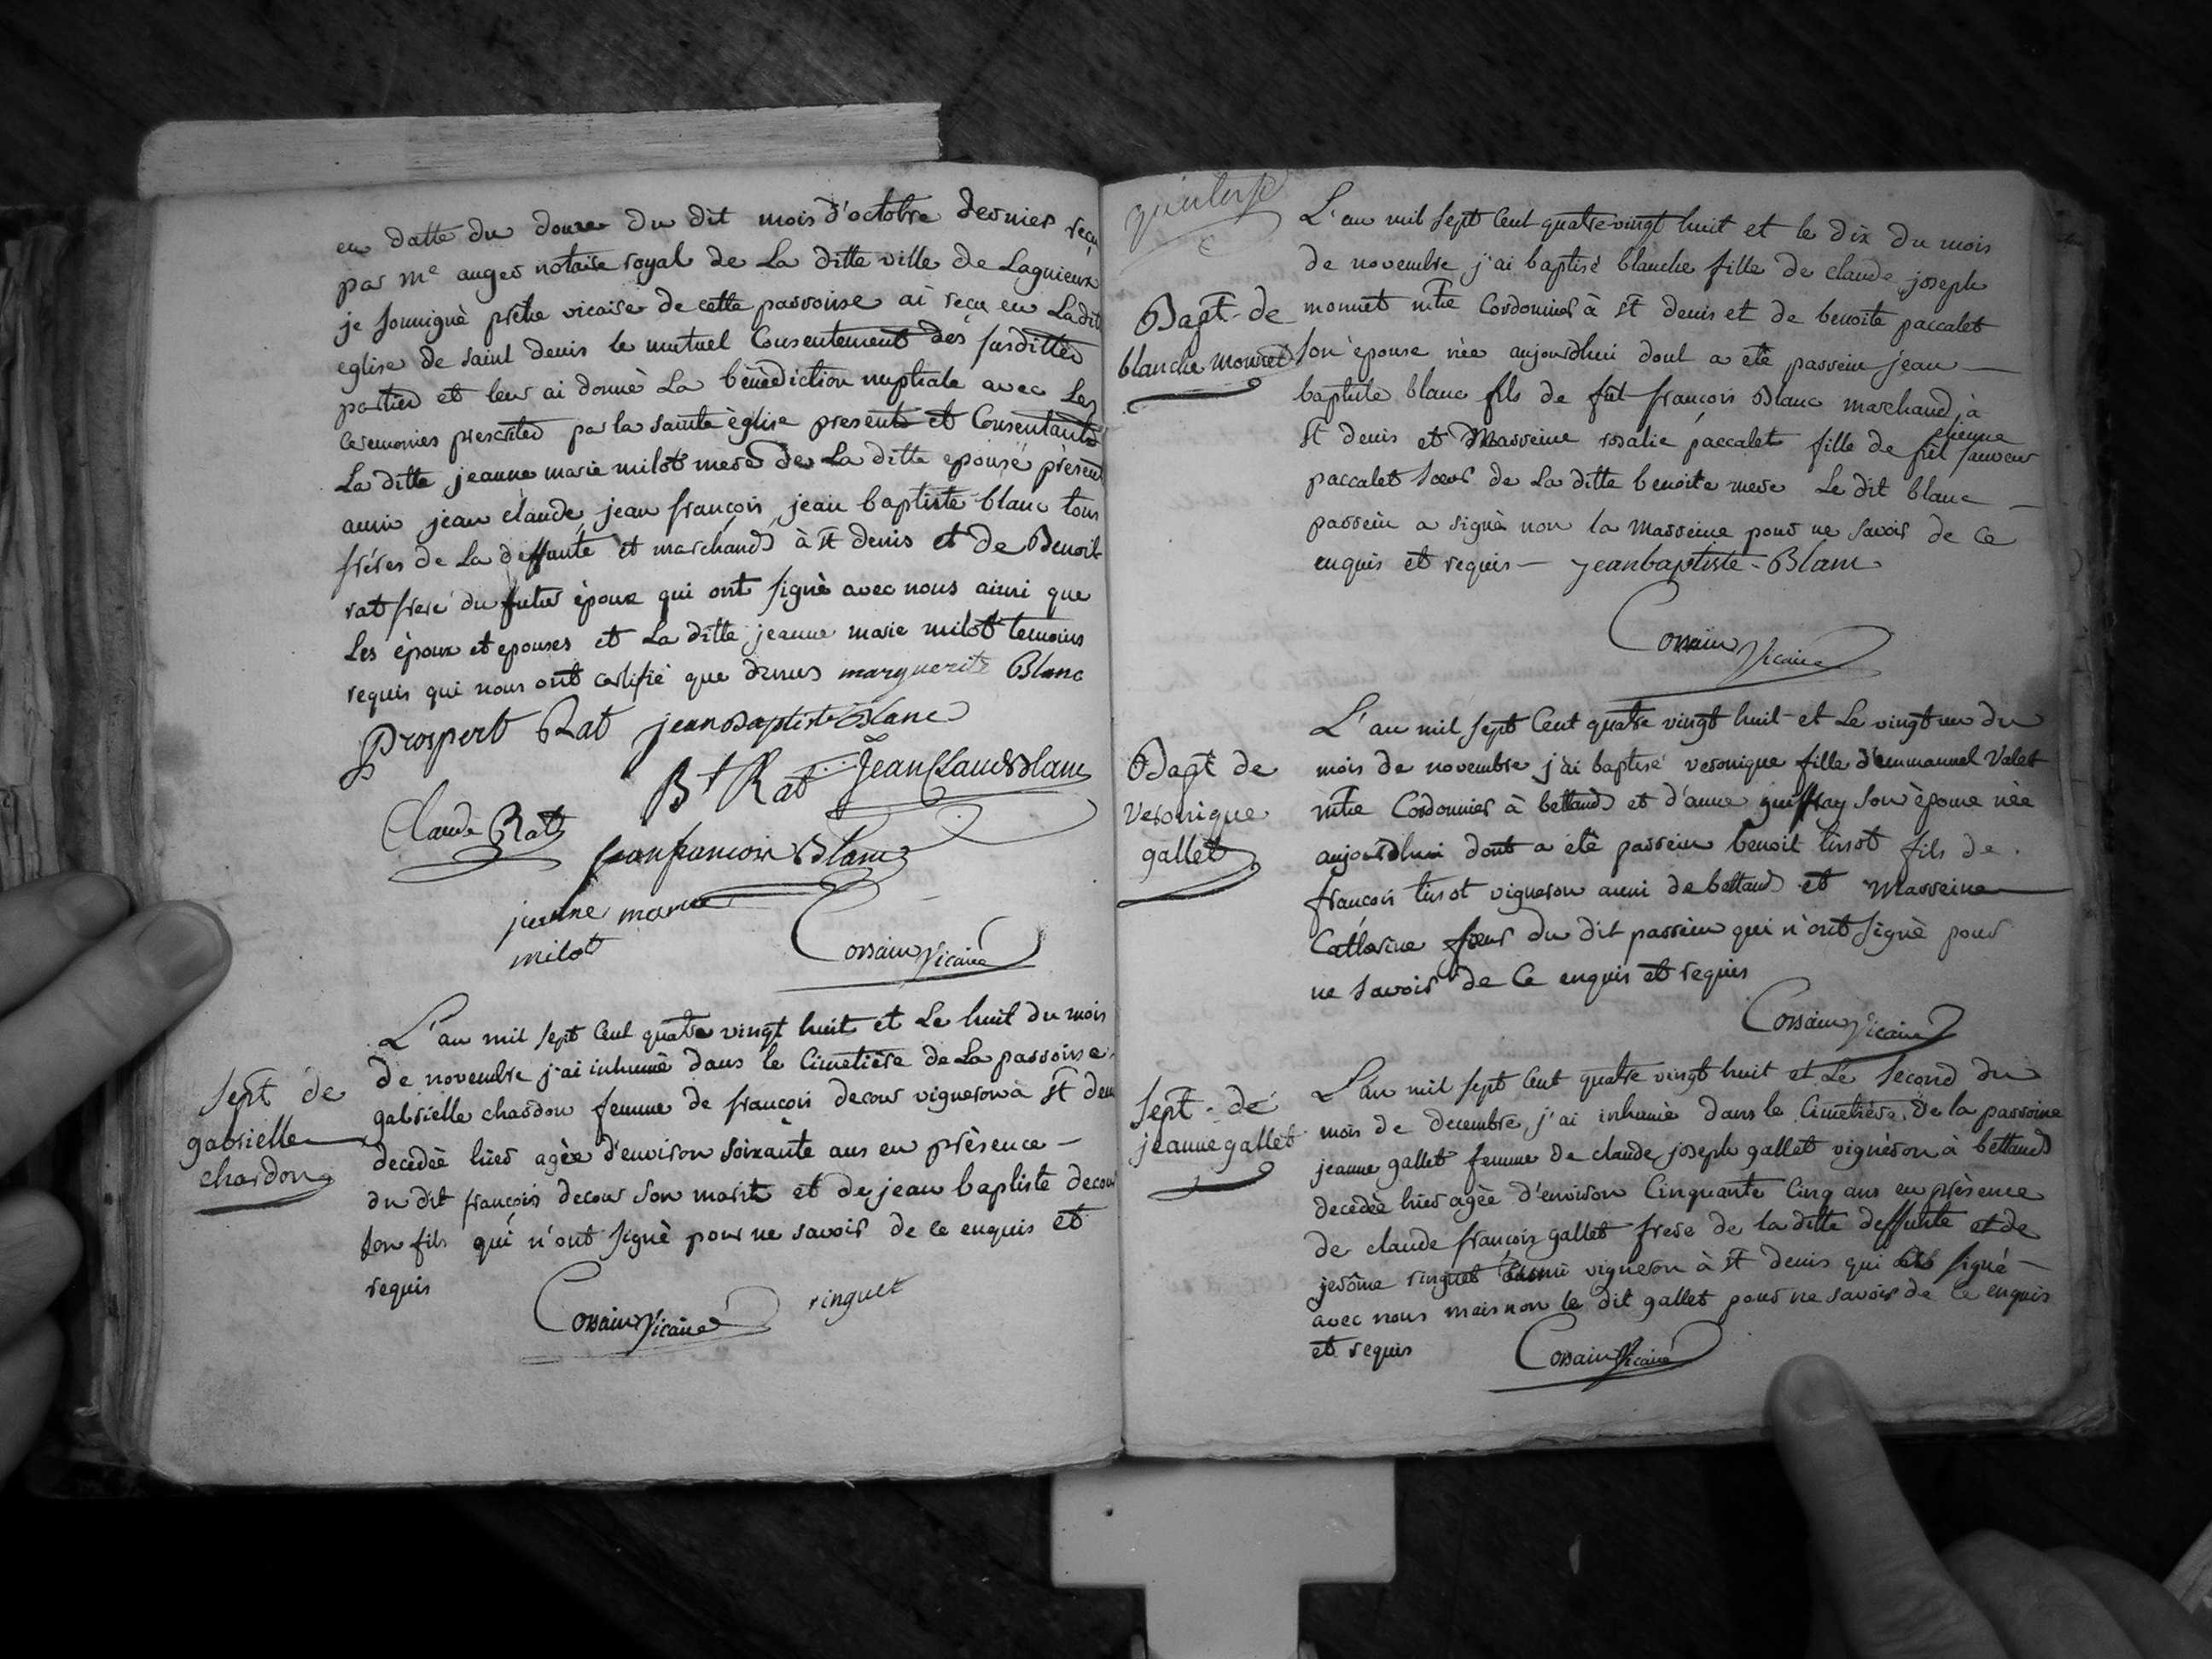 en datte du douze du dit mois d'octobre dernier reçu
par me auger notaire royal de La ditte ville de Lagnieux
je soussigné prêtre vicaire de cette parroisse ai reçu en Ladit
eglise de saint denis le mutuel Consentement des susdittes
parties et leur ai donné La bénédiction nuptiale avec Les
ceremonies prescrites par la sainte église presents et Consentants
La ditte jeanne marie milot mere de La ditte epouse présent
aussi jean claude, jean françois, jean baptiste blanc tous
fréres de La deffunte et marchands à st denis et de Benoit
rat frere du futur époux qui ont signé avec nous ainsi que
Les époux et epouses et La ditte jeanne marie milot temoins
requis qui nous ont certifié que dessus marguerite Blanc
prospert Rat jean Baptiste Blanc
Bt Rat Jean Claude Blanc
Claude Rat
jean francois Blanc
jeanne marie
milot
Corsain Vicaire
Sept de
gabrielle
chardon
L'an mil sept Cent quatre vingt huit et Le huit du mois
de novembre j'ai inhumé dans le Cimetière de La parroisse
gabrielle chardon femme de françois decour vigneron à st den
decedée hier agée d'environ soixante ans en présence
du dit françois decour son marit et de jean baptiste decour
son fils qui n'ont signé pour ne savoir de ce enquis et
requis
Corsain Vicaire
ringuet
Bapt. de
blanche monnet
L'an mil sept Cent quatre vingt huit et le dix du mois
de novembre j'ai baptisé blanche fille de claude joseph
monnet mtre Cordonnier à st denis et de benoite paccalet
son épouse née aujourdhui dont a eté parrein jean
baptiste blanc fils de fût françois Blanc marchand à
st denis et Marreine rosalie paccalet fille de fût etienne sauveur
paccalet soeur de La ditte benoite mere Le dit blanc
parrein a signé non la Marreine pour ne savoir de ce
enquis et requis jean baptiste Blanc
Corsain Vicaire
Bapt de
Veronique
gallet
L'an mil sept Cent quatre vingt huit et Le vingt un du
mois de novembre j'ai baptisé veronique fille d'emmanuel Valet
mtre Cordonnier à bettand et d'anne guiffray son épouse née
aujourdhui dont a eté parrein benoit tissot fils de
françois tissot vigneron aussi de bettand et Marreine
Catterine soeur du dit parrein qui n'ont signé pour
ne savoir de Ce enquis et requis
Corsain Vicaire
Sept. de
jeanne gallet
L'an mil sept Cent quatre vingt huit et Le second du
mois de decembre j'ai inhumé dans le Cimetière de la parroisse
jeanne gallet femme de claude joseph gallet vigneron à bettand
decedée hier agée d'environ Cinquante Cinq ans en présence
de claude françois gallet frere de la ditte deffunte et de
jerôme ringuet vigneron à st denis qui signé
avec nous mais non le dit gallet pour ne savoir de Ce enquis
et requis
Corsain Vicaire